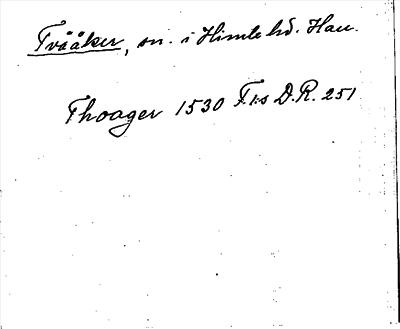 Tvååker, sn. i Himle hd. Hall.
Thoager 1530 F.1:s D.R. 251